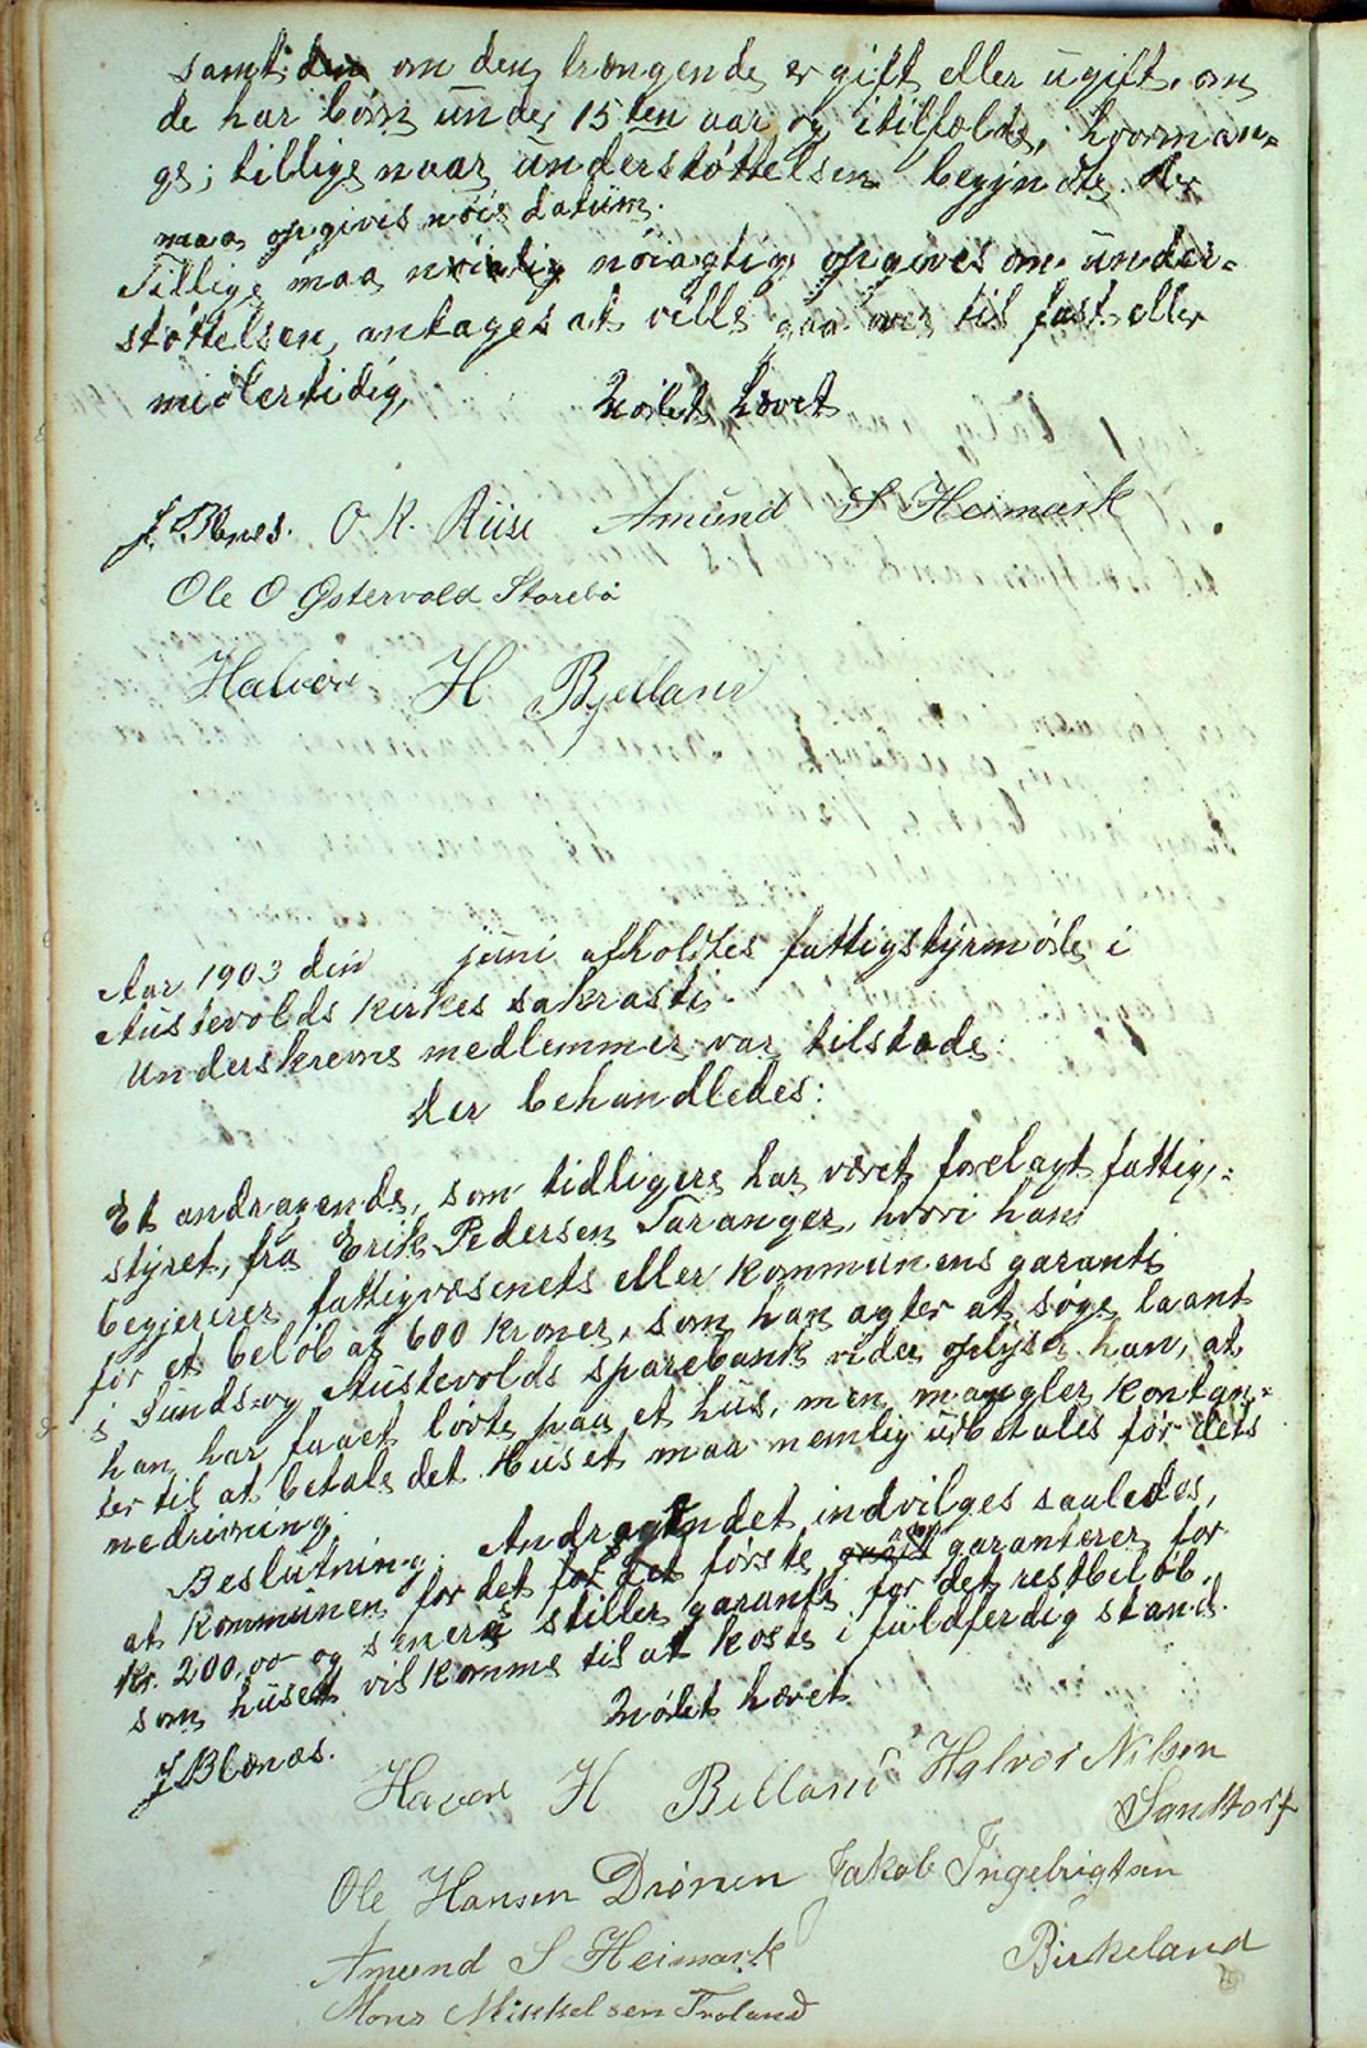 samt den om den trængende er gift eller ugift, om
de har børn under 15ten aar og itilfælde, hvorman-
ge; tillige naar understøttelsen begynte. der
maa opgives nøie datum.
Tillige maa nøiatig nøiagtig opgives om under-
støttelsen, antages at ville gaa over til fast eller
midlertidig,
Mødet hævet
J. Blenes. O. K. Riise Amund S Heimark
Ole O Østervold Storebø
Halvor H Bjelland
Aar 1903 den juni afholdtes fattigstyrmøde i
Austevolds kirkes sakrasti.
Underskrevne medlemmer var tilstede:
der behandledes:
Et andragende, som tidligere har været forelagt fattig-
styret, fra Erik Pedersen Taranger, hvori han
begjerer fattigvæsenets eller kommunens garanti
for et beløb af 600 kroner, som han agter at søge laant
i Sunds- og Austevolds sparebank vider oplyser han, at
han har faaet løvte paa et hus, men mangler kontan-
ter til at betale det. Huset maa nemlig udbetales før dets
nedrivning.
Beslutning. Andragendet indvilges saaledes,
at kommunen for det for det første garanterer for
Kr. 200,00 og senere stiller garanti for det restbeløb,
som huset vil komme til at koste i fuldferdig stand.
Mødet hævet
J Blænæs.
Havor H Belland Halvor Nilsen
Sandtorf
Ole Hansen Drønen Jakob Ingebrigtsen
Amund S Heimark Birkeland
Mons Mikkelsen Troland